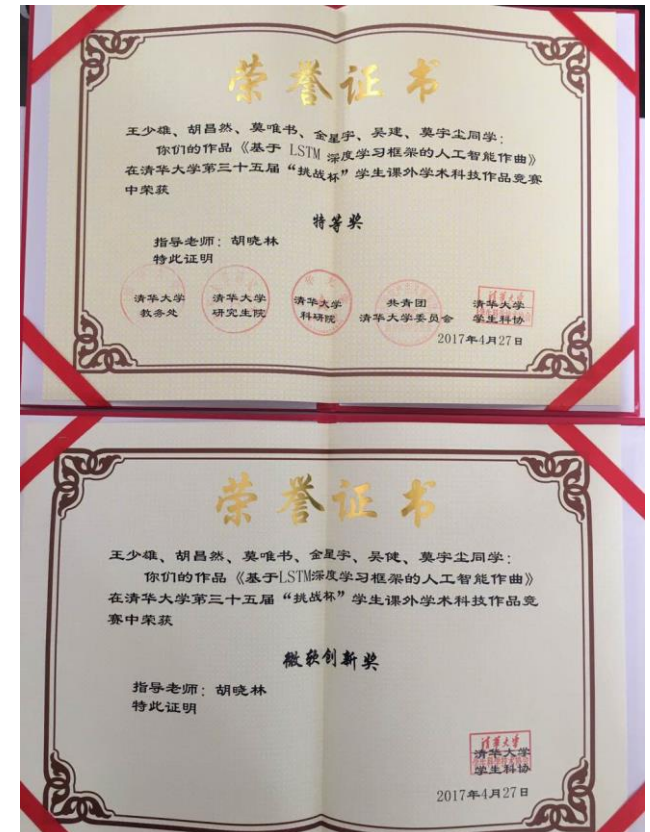 荣誉证书
王少雄、胡昌然、莫唯书、金星宇、吴建、莫宇尘同学：
你们的作品《基于 LSTM 深度学习框架的人工智能作曲》
在清华大学第三十五届“挑战杯”学生课外学术科技作品竞赛
中荣获
特等奖
指导老师：胡晓林
特此证明
清华大学 清华大学 清华大学 共青团 清华大学
教务处 研究生院 科研院 清华大学委员会 学生科协
2017年4月27日
荣誉证书
王少雄、胡昌然、莫唯书、金星宇、吴健、莫宇尘同学：
你们的作品《基于LSTM深度学习框架的人工智能作曲》
在清华大学第三十五届“挑战杯”学生课外学术科技作品竞
赛中荣获
微软创新奖
指导老师：胡晓林
特此证明
清华大学
清华大学
学生科协
2017年4月27日